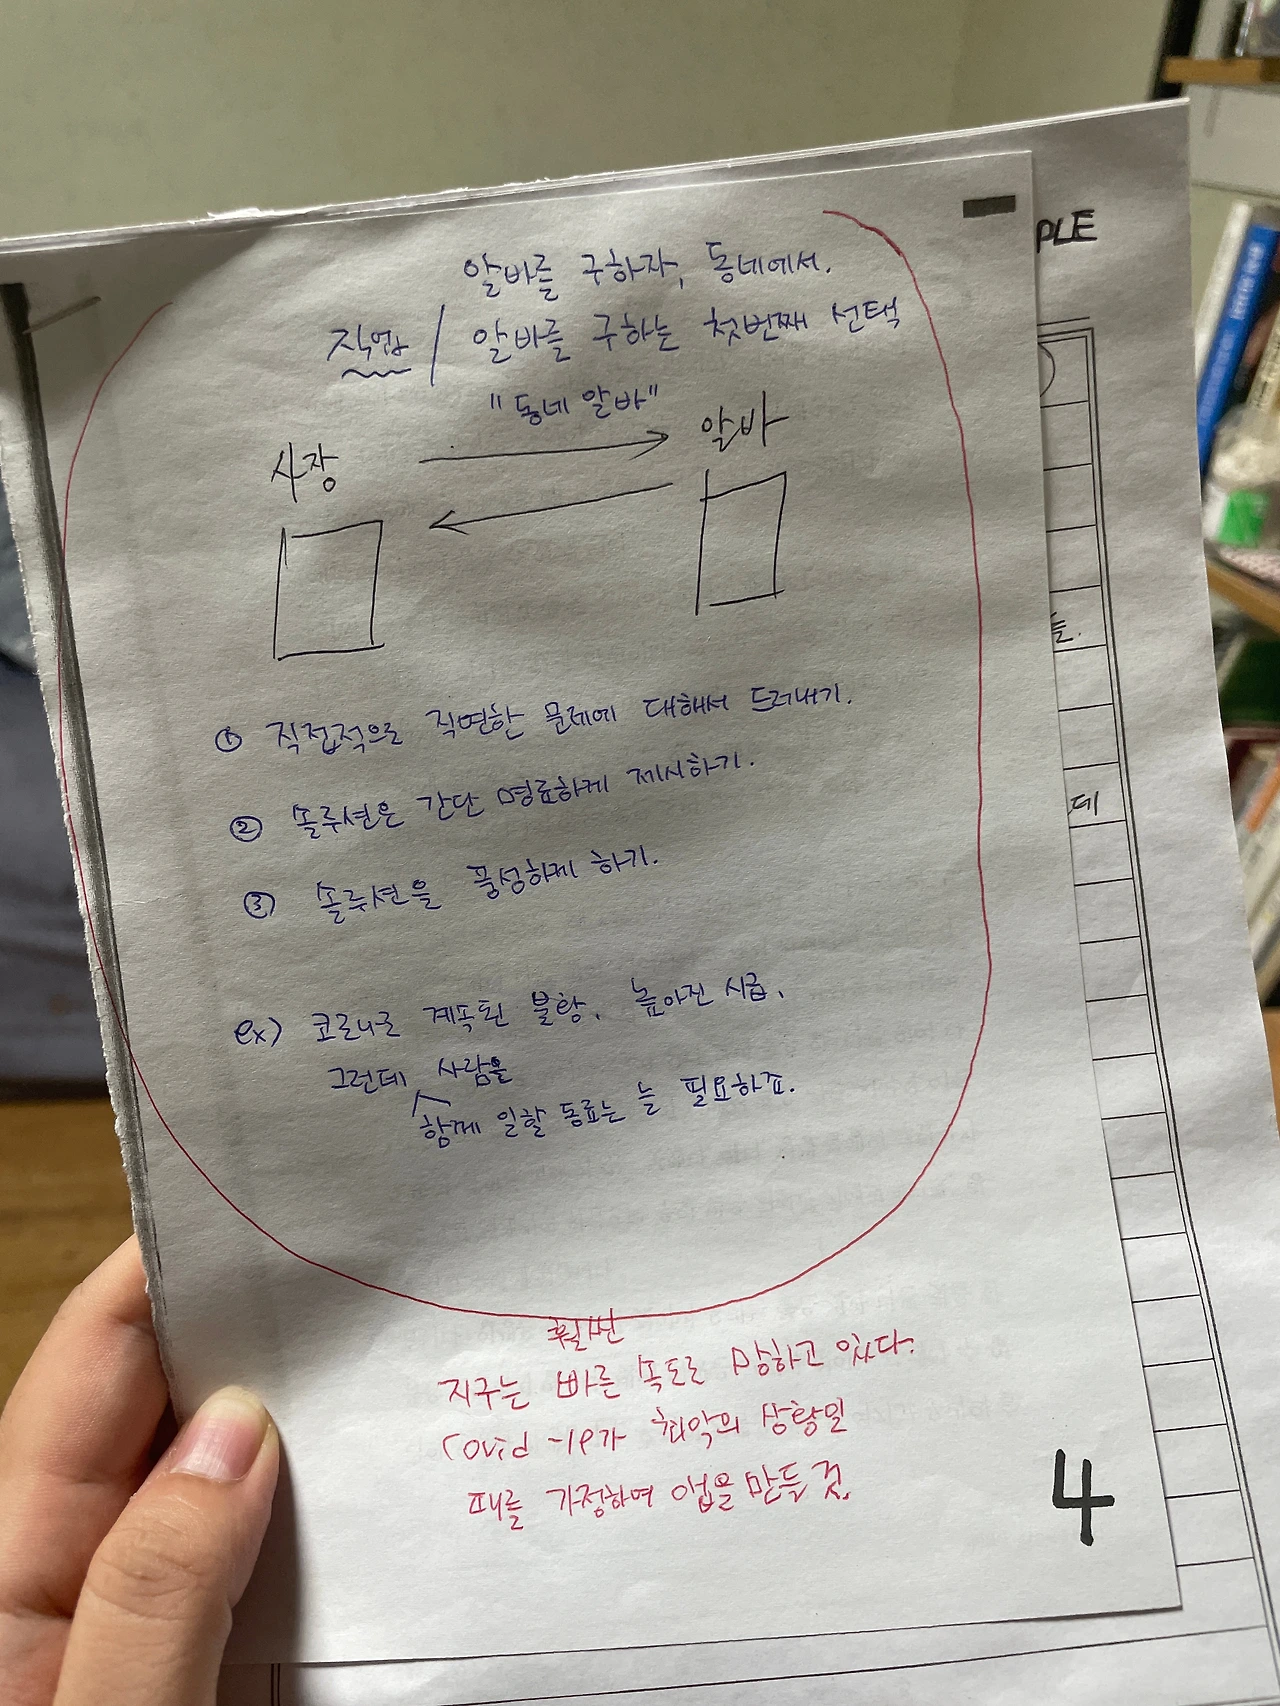 알바를 구하자, 동네에서.
직업 / 알바를 구하는 첫번째 선택
"동네 알바"
사장
알바
① 직접적으로 직면한 문제에 대해서 드러내기.
② 솔루션은 간단 명료하게 제시하기.
③ 솔루션을 풍성하게 하기.
ex) 코로나로 계속된 불황, 높아진 시급,
그런데 사람을
함께 일할 동료는 늘 필요하죠.
훨씬
지구는 빠른 속도로 망하고 있다.
Covid-19가 최악의 상황일
때를 가정하여 어법을 만들 것.
4
PLE
들.
데